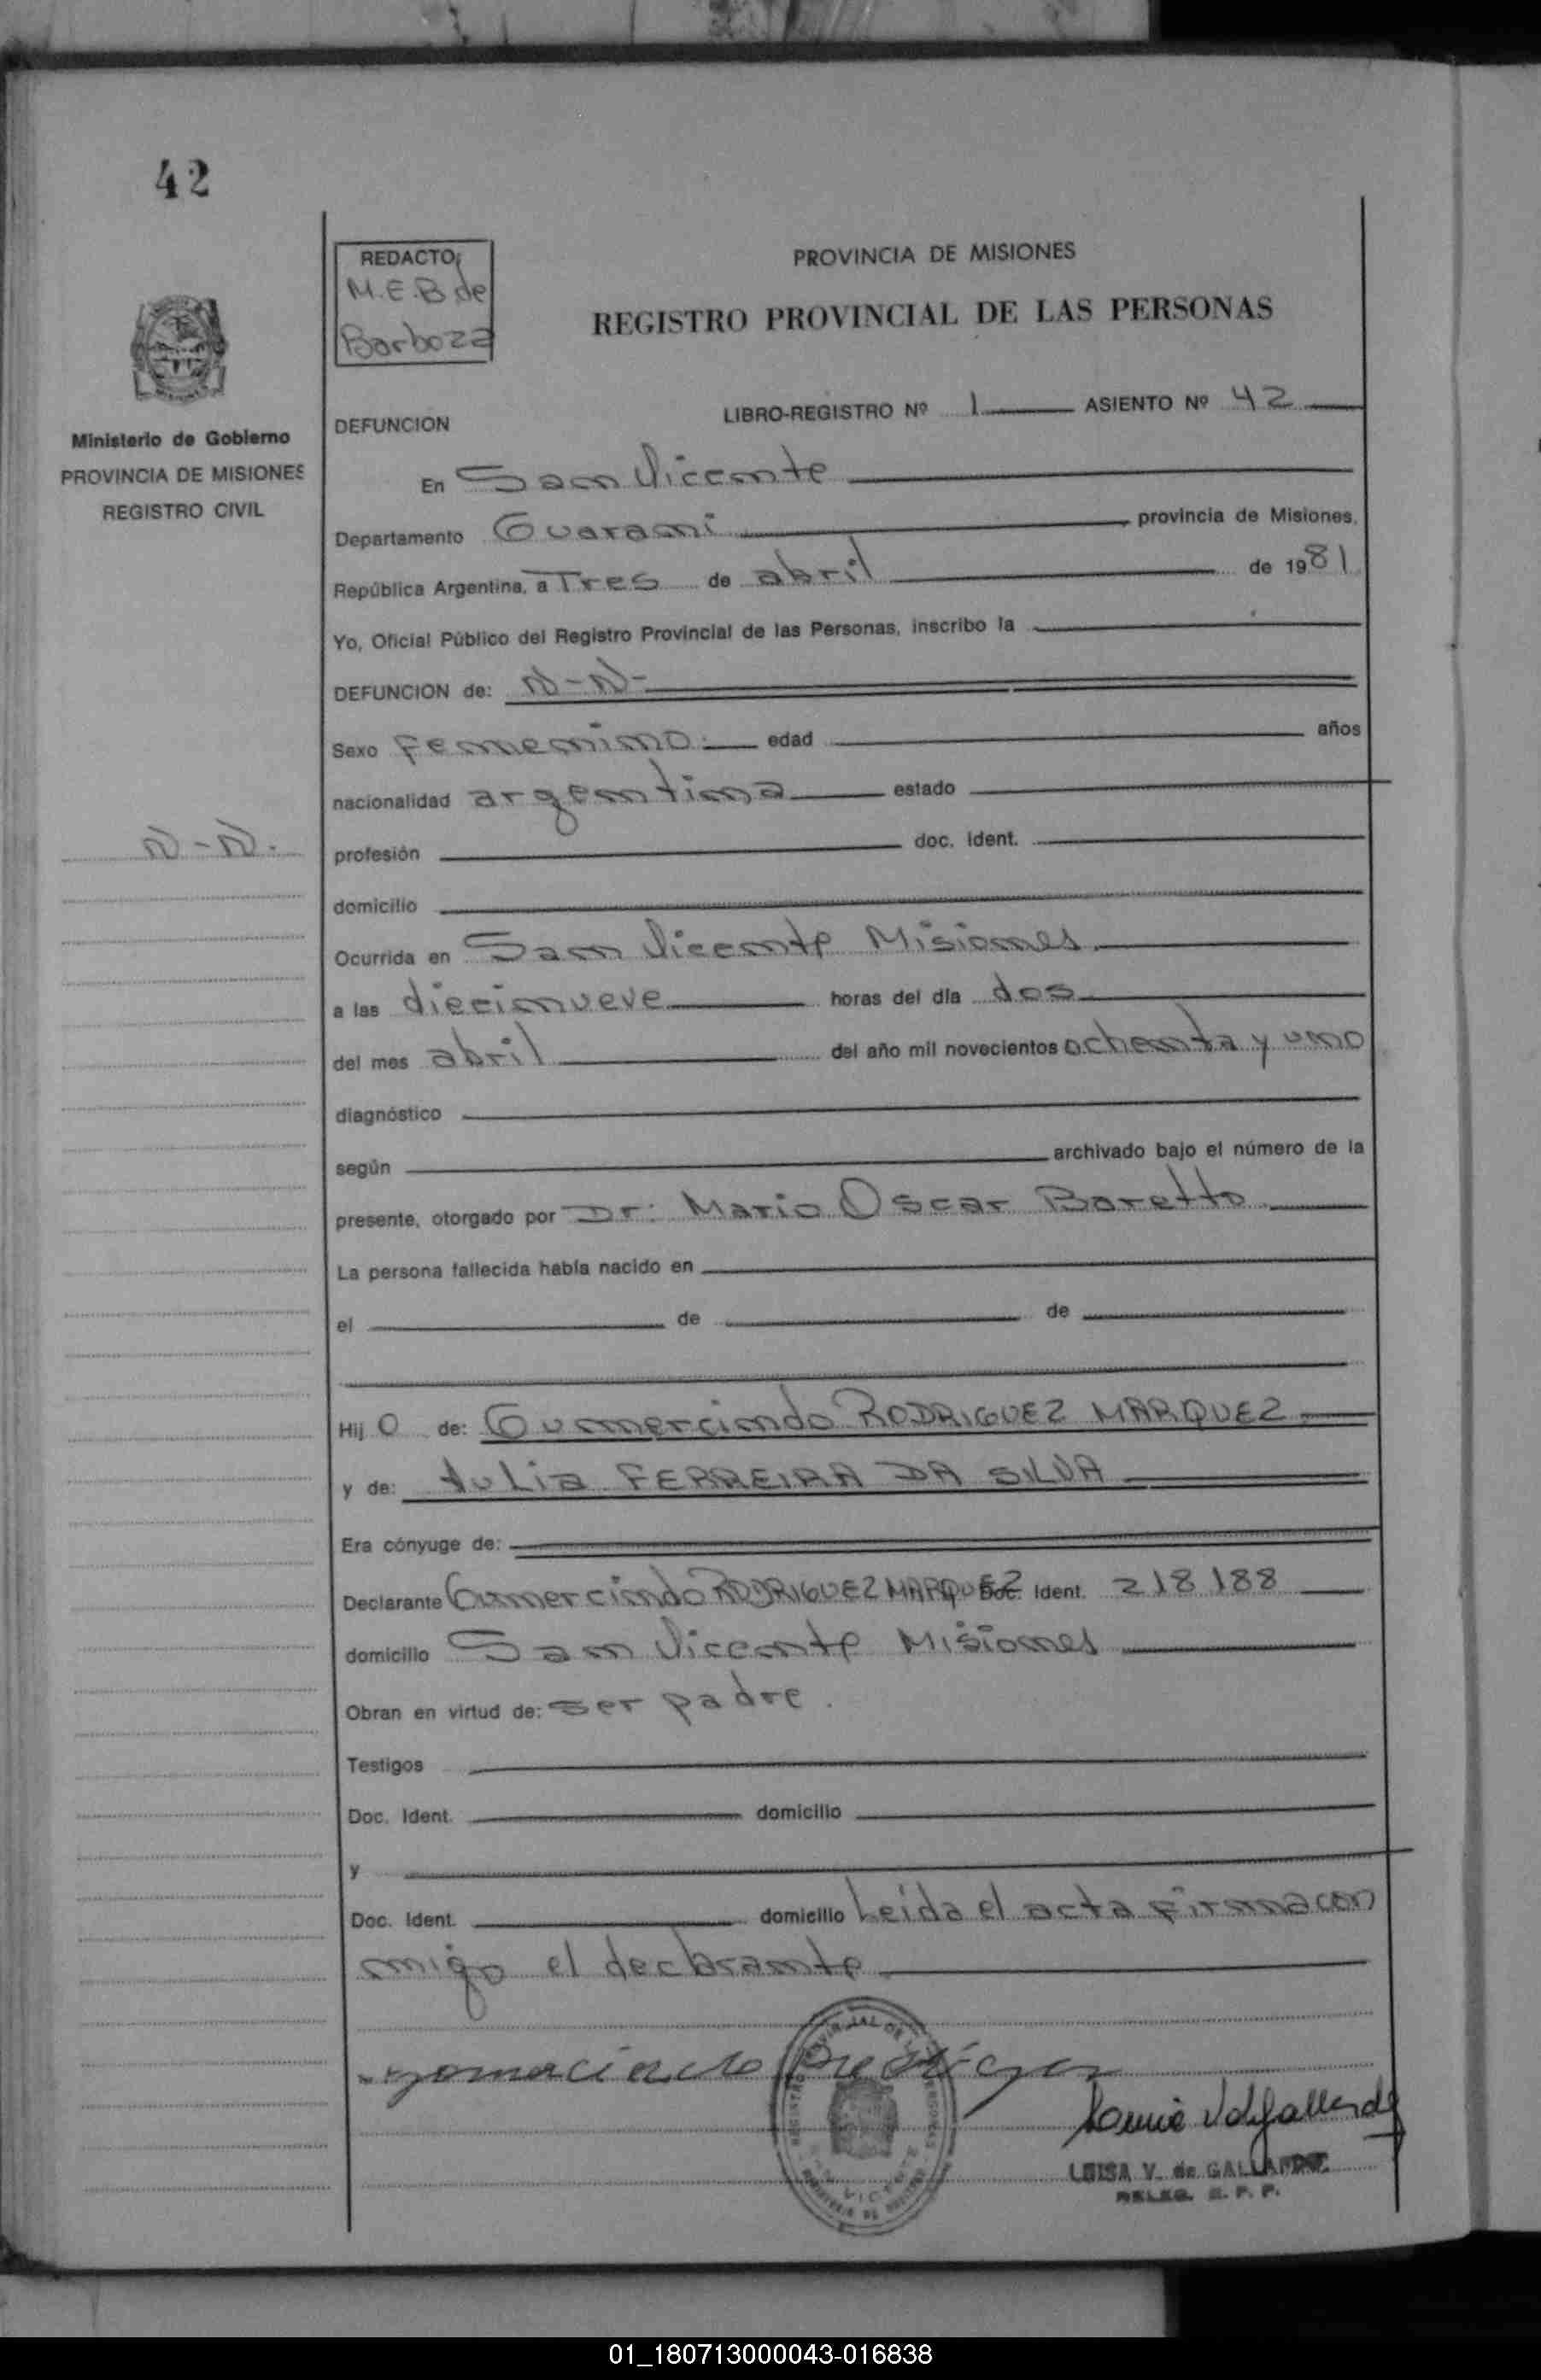 42
REDACTO:
M.E.B de
Barboza
PROVINCIA DE MISIONES
REGISTRO PROVINCIAL DE LAS PERSONAS
Ministerio de Gobierno
PROVINCIA DE MISIONES
REGISTRO CIVIL
DEFUNCION LIBRO-REGISTRO Nº 1 ASIENTO Nº 42
En San Vicente
Departamento Guarani provincia de Misiones,
República Argentina, a Tres de abril de 1981
Yo, Oficial Público del Registro Provincial de las Personas, inscribo la
DEFUNCION de: N-N-
Sexo Femenino.- edad años
nacionalidad argentina estado
N-N. profesión doc. ident.
domicilio
Ocurrida en San Vicente Misiones
a las diecinueve horas del día dos
del mes abril del año mil novecientos ochenta y uno
diagnóstico
según archivado bajo el número de la
presente, otorgado por Dr: Mario Oscar Boretto
La persona fallecida había nacido en
el de de
Hij o de: Gumercindo RODRIGUEZ MARQUEZ
y de: Julia FERREIRA DA SILVA
Era cónyuge de:
Declarante Gumercindo RODRIGUEZ MARQUEZ Doc. Ident. 218188
domicilio San Vicente Misiones
Obran en virtud de: ser padre.
Testigos
Doc. Ident. domicilio
y
Doc. Ident. domicilio Leida el acta firma con
migo el declarante
LUISA V. de GALLARDO
DELEG. R. P. P.
01_180713000043-016838